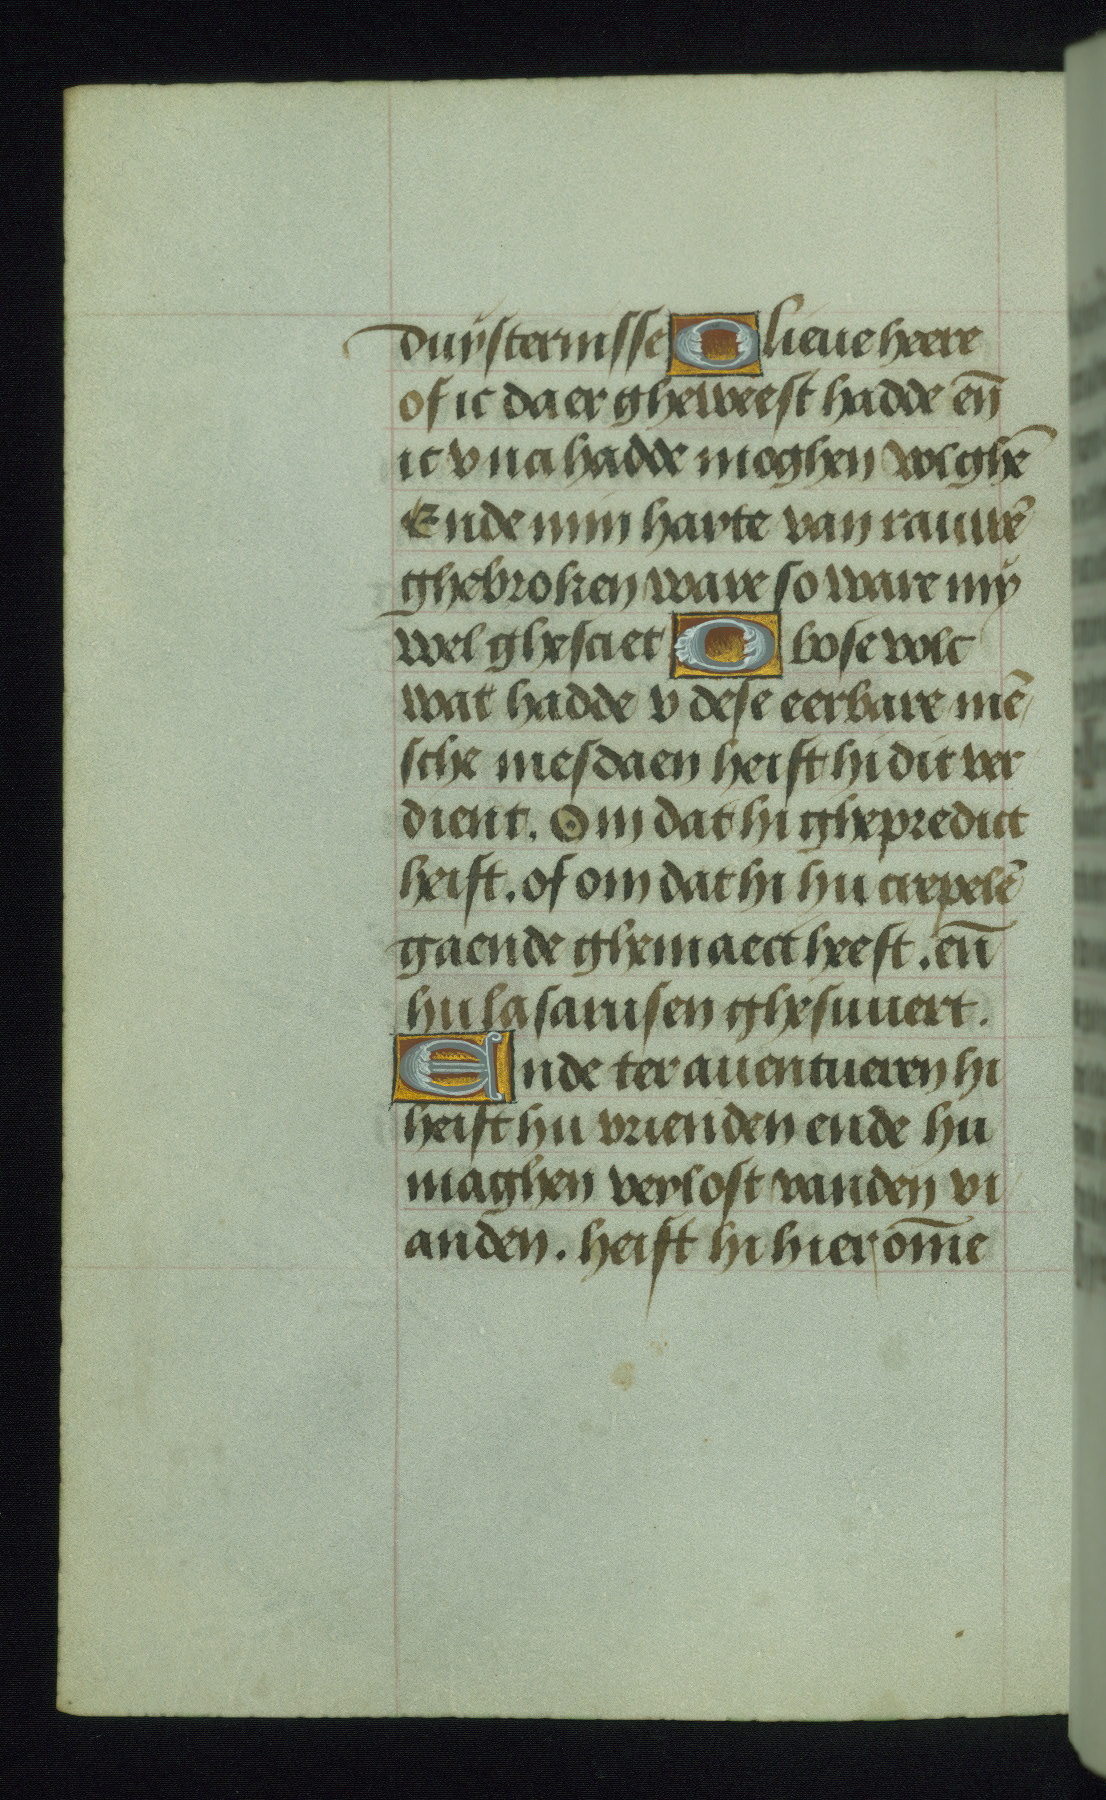 duÿsternisse O lieue heere
of ic daer gheweest hadde eñ
ic v na hadde moghen volghē
Ende min harte van rauwē
ghebroken ware so ware mÿ
wel ghesciet O bose volc
wat hadde v dese eerbare mē
sche mesdaen heift hi dit ver
dient. Om dat hi ghepredict
heift. of om dat hi hu crepelē
gaende ghemaect heeft. eñ
hu lasarusen ghesuuert.
Ende ter auentueren hi
heift hu vrienden ende hu
maghen verlost vanden vi
anden. heift hi hier om̄e